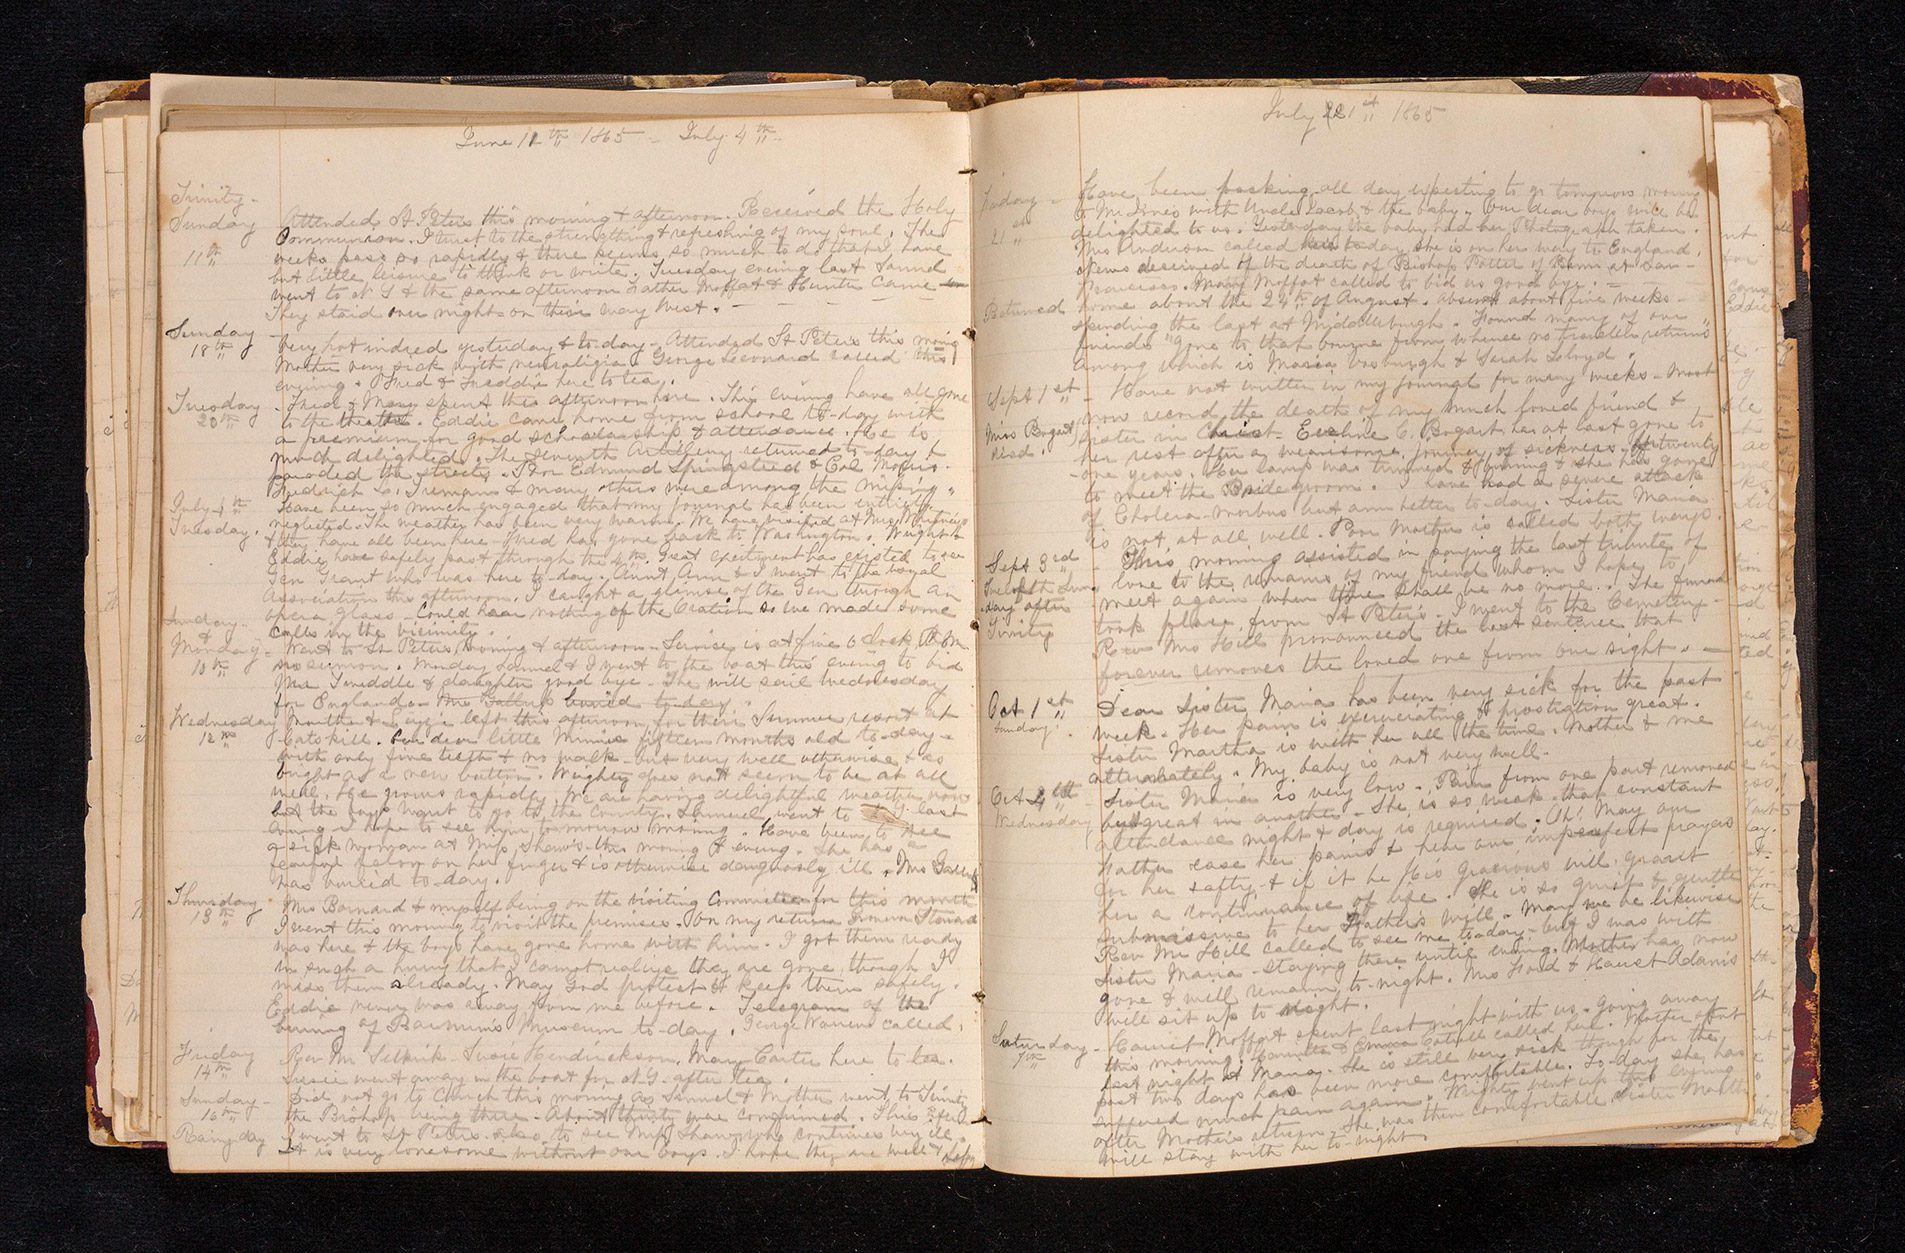 June 11th 1865 - July 4th
Trinity -
Sunday Attended St Peters this morning & afternoon. Received the Holy
Communion. I trust to the strengthening & refreshing of my soul. The
11th weeks pass so rapidly & there seems so much to do that I have
but little leisure to think or write. Tuesday evening last Samuel
went to N Y & the same afternoon Father Moffat & Hunter came
They staid over night on their way West. -
Sunday Very hot indeed yesterday & to-day - Attended St Peters this morning
18th Mother very sick with neuralgia. George Leonard called this
evening. Fred & Freddie here to tea.
Tuesday Fred & Mary spent this afternoon here. This evening have all gone
20th to the theatre. Eddie came home from school to-day with
a premium for good scholarship & attendance. He is
much delighted. The Seventh Artillery returned to-day &
paraded the streets. Edmund Springsteed & Col. Morris
Fredrick L. Tremain & many others were among the missing
July 4th Have been so much engaged that my journal has been entirely
Tuesday. neglected. The weather has been very warm. We have visited at Mrs
& they have all been here - Fred has gone back to Washington. Wright &
Eddie have safely past through the 4th. Great excitement has existed to see
Gen Grant who was here to-day. Aunt Ann & I went to the
Association this afternoon. I caught a glimpse of the Gen through an
opera glass - Could hear nothing of the Oration so we made some
calls in the vicinity.
Sunday - Went to St Peters morning & afternoon - Service is at five o clock P. M.
& Monday - no sermon. Monday Samuel & I went to the boat this evening to bid
10th Mrs Tweddle & daughter good bye - She will sail Wednesday
for England - Mrs Gallup buried to-day
Wednesday left this afternoon for their Summer resort at
12th Catskill. Our dear little Minnie fifteen months old to-day -
with only five teeth & no walk - but very well otherwise & as
bright as a new button. Wrighty does not seem to be at all
well. He grows rapidly. We are having delightful weather now
but the boys want to go to the Country. Samuel went to N.Y. last
evening - I hope to see him to-morrow morning. Have been to see
a sick woman at Miss Shaw's this morning & evening. She has a
fearful felon on her finger & is otherwise dangerously ill. Mrs Gallup
was buried to-day.
Thursday Mrs Barnard & myself being on the visiting Committee for this month
13th I went this morning to visit the premises. On my return
was here & the boys have gone home with him. I got them ready
in such a hurry that I cannot realize they are gone, though I
miss them already. May God protect & keep them safely.
Eddie never was away from me before. Telegram of the
burning of Barnum's Museum to-day. George Warren called.
Friday Rev Mr Selkirk - Susie Hendrickson. Mary Carter here to tea.
14th Susie went away in the boat for N.Y. after tea.
Sunday - Did not go to Church this morning as Samuel & Mother went to Trinity
16th the Bishop being there - About thirty were confirmed. This
Rainy day I went to St Peters. Also to see Miss Shaw who continues very ill.
It is very lonesome without our boys. I hope they are well & happy
July 21st 1865
Friday - Have been packing all day expecting to go tomorrow morning
to Mr Ives with Uncle Jacob & the baby. Our dear boys will be
21st delighted to us. Yesterday the baby had her Photograph taken.
Mrs Anderson called here to-day she is on her way to England.
News received of the death of Bishop Potter of Penn at San-
Francisco. Mary Moffat called to bid us good bye. -
Returned home about the 24th of August. Absent about five weeks -
spending the last at Middleburgh. Found many of our
friends "gone to that bourne from whence no traveller returns"
among which is Maria Vosburgh & Sarah Lloyd.
Sept 1st - Have not written in my journal for many weeks - Must
now record the death of my much loved friend &
Miss Bogart sister in Christ - Eveline C. Bogart has at last gone to
died. her rest after a wearisome journey of sickness of twenty
one years. Her lamp was trimmed & burning & she has gone
to meet the Bridegroom. I have had a severe attack
of Cholera-morbus but am better to-day. Sister Maria
is not at all well. Poor Mother is called both ways.
Sept 3rd - This morning assisted in paying the last tribute of
Twelfth Sun- love to the remains of my friend whom I hope to
day after meet again when time shall be no more. The funeral
Trinity took place from St Peter's. I went to the Cemetery -
Rev Mr Hill pronounced the last sentence that
forever removes the loved one from our sight. -
Oct 1st Dear Sister Maria has been very sick for the past
Sunday week. Her pain is excruciating & prostration great.
Sister Martha is with her all the time. Mother & me
alternately. My baby is not very well -
Oct 4th Sister Maria is very low. Pain from one part removed
Wednesday but great in another - She is so weak that constant
attendance night & day is required. Oh! May our
Father ease her pains & hear our imperfect prayers
for her safety & if it be His Gracious will grant
her a continuance of life. She is so quiet & gentle
submissive to her Father's will. May we be likewise
Rev Mr Hill called to see me to-day - but I was with
Sister Maria - staying there until evening. Mother has now
gone & will remain to-night. Mrs Hoad & Harriet Adams
will sit up to night.
Saturday - Harriet Moffat spent last night with us. Going away
7th this morning. & Emma Cottrell called here. Mother spent
last night at Maria. She is still very sick though for the
past two days has been more comfortable. To-day she has
suffered much pain again. Wrighty went up this evening
after Mother's return. She was then comfortable. Sister Martha
will stay with her to-night